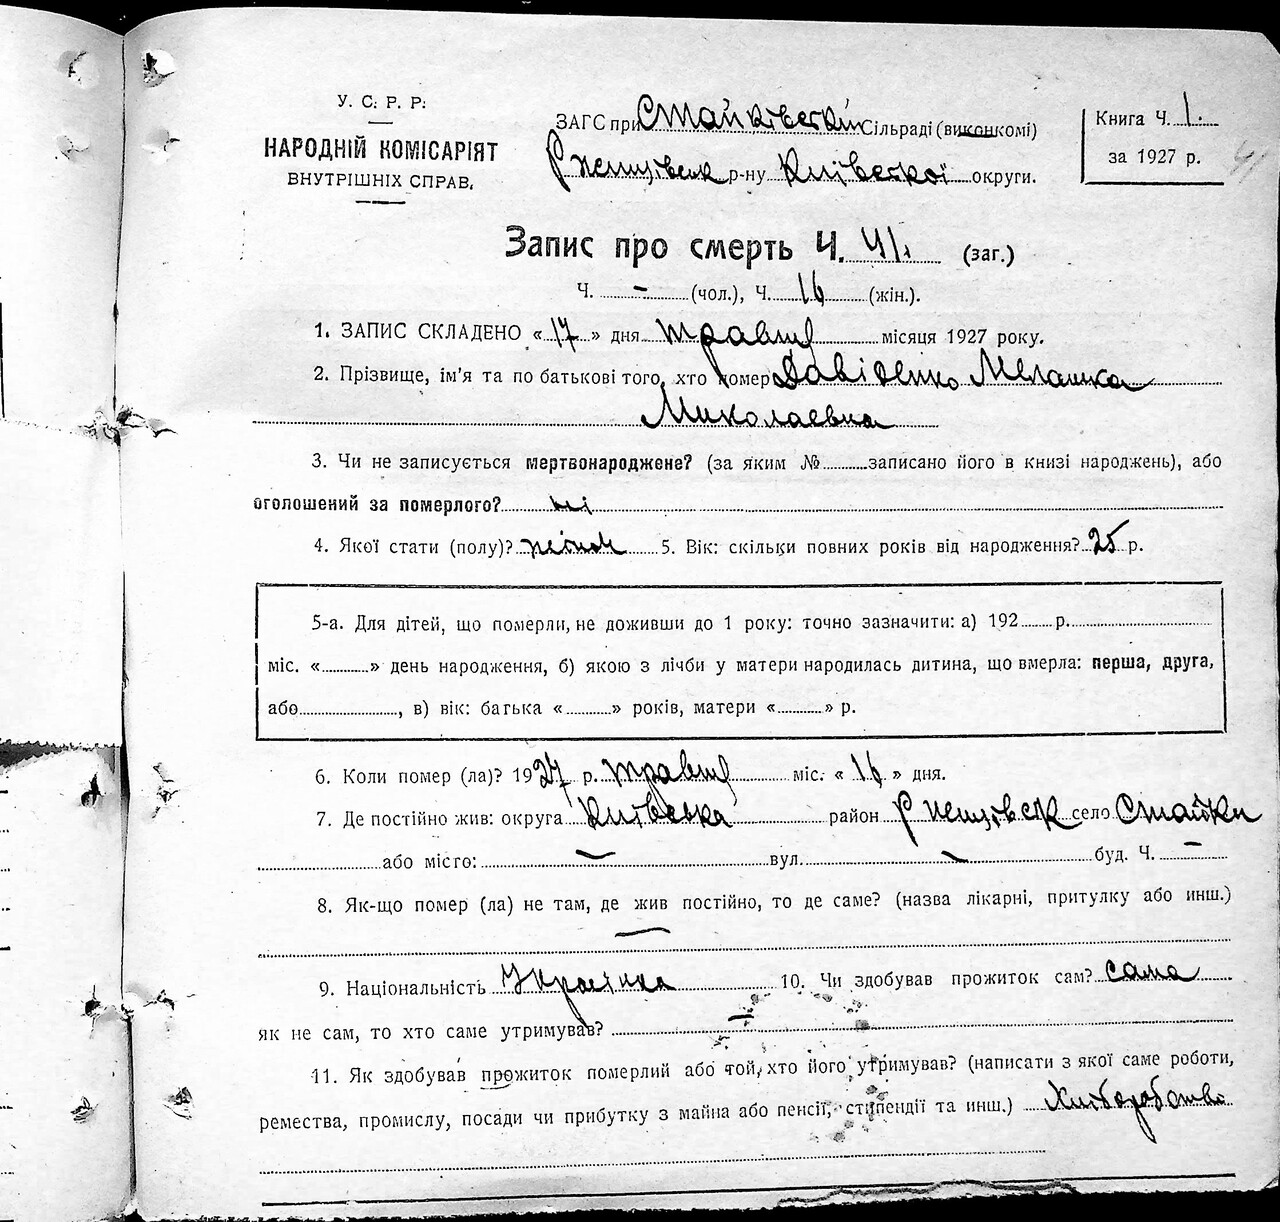 У. С. Р. Р.
НАРОДНІЙ КОМІСАРІЯТ
ВНУТРІШНІХ СПРАВ.
ЗАГС при Стайківській Сільраді (виконкомі)
Ржищівськ р-ну Київської округи.
Книга Ч. 1.
за 1927 р.
41
Запис про смерть Ч. 41. (заг.)
Ч. - (чол.), Ч. 16 (жін.).
1. ЗАПИС СКЛАДЕНО «17» дня травня місяця 1927 року.
2. Прізвище, ім'я та по батькові того, хто помер Давіденко Мелашка
Миколаевна
3. Чи не записується мертвонароджене? (за яким № записано його в книзі народжень), або
оголошений за померлого? ні
4. Якої стати (полу)? жіноч 5. Вік: скільки повних років від народження? 25 р.
5-а. Для дітей, що померли, не доживши до 1 року: точно зазначити: а) 192 р.
міс. « » день народження, б) якою з лічби у матери народилась дитина, що вмерла: перша, друга,
або , в) вік: батька « » років, матери « » р.
6. Коли помер (ла)? 1927 р. травня міс. «16» дня.
7. Де постійно жив: округа Київська район Ржищівськ село Стайки
або місто: — вул. — буд. Ч. —
8. Як-що помер (ла) не там, де жив постійно, то де саме? (назва лікарні, притулку або инш.)
—
9. Національність Українка 10. Чи здобував прожиток сам? сама
як не сам, то хто саме утримував? —
11. Як здобував прожиток померлий або той, хто його утримував? (написати з якої саме роботи,
ремества, промислу, посади чи прибутку з майна або пенсії, стипендії та инш.) Хліборобство